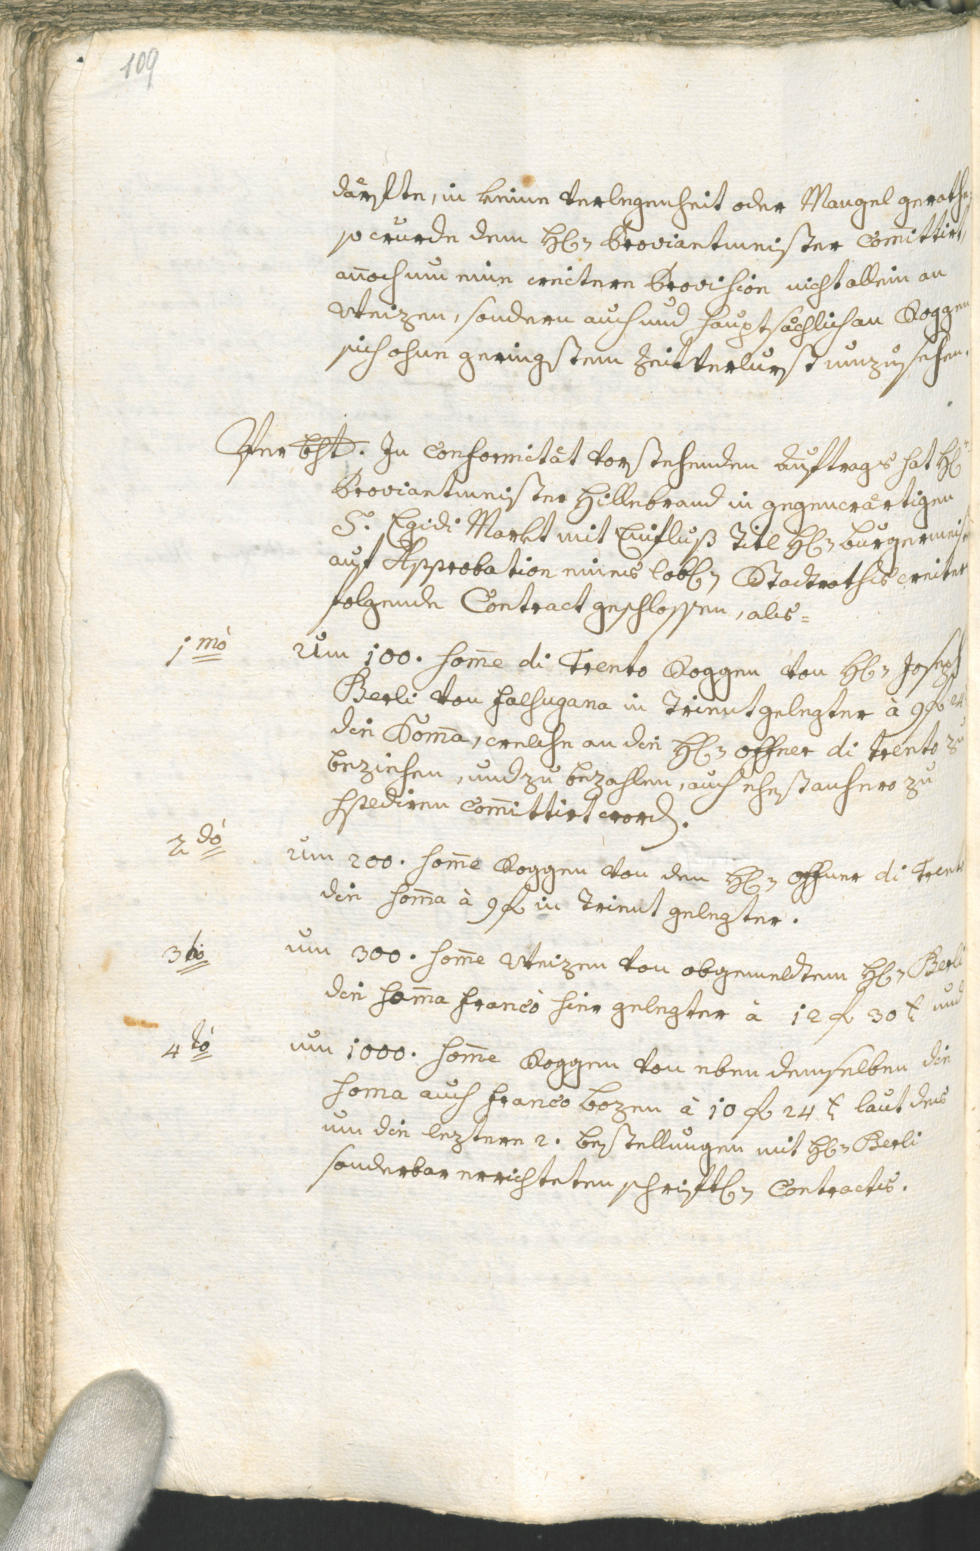 109
därffte, in keine Verlegenheit oder Mangel gerathe,
so wurde dem H(er)n Proviantmeister Com̄ittirt,
an̄och um eine weitere Provision nicht allein an
Weizen, sondern auch und hauptsächlich an Roggen
sich ohne geringstem Zeit Verlurst umzusehen.
In Conformität vorstehenden Auftrags hat H(er)
Proviantmeister Hillebrand in gegenwärtigen
S. Egidi Markt mit Einfluß Titl H(er)n Burgermeist
auf Approbation eines lobl(ichen) Stadtraths weiter
folgende Contract geschlossen, als=
1mò Um 100. Som̄e di Trento Roggen von H(er)n Joseph
Berli von Falsugana in Trient gelegter à 9 f 24
die Som̄a, welche an die H(er)n Offner di Trento zu
beziehen, und zu bezahlen, auch ehest anhero zu
spediren Com̄ittirt word(en).
2dò um 200. Som̄e Roggen von den H(er)n Offner di Trento
die Som̄a à 9 f in Trient gelegter.
3tiò um 300. Som̄e Weizen von obgemeldtem H(er)n Berli
die Som̄a Francò hier gelegter à 12 f 30 x und
4tò um 1000. Som̄e Roggen von eben demselben die
Soma auch Franco Bozen à 10 f 24 x laut des
um die leztere 2. Bestellungen mit H(er)n Berli
sonderbar errichteten schriftl(ichen) Contractes.